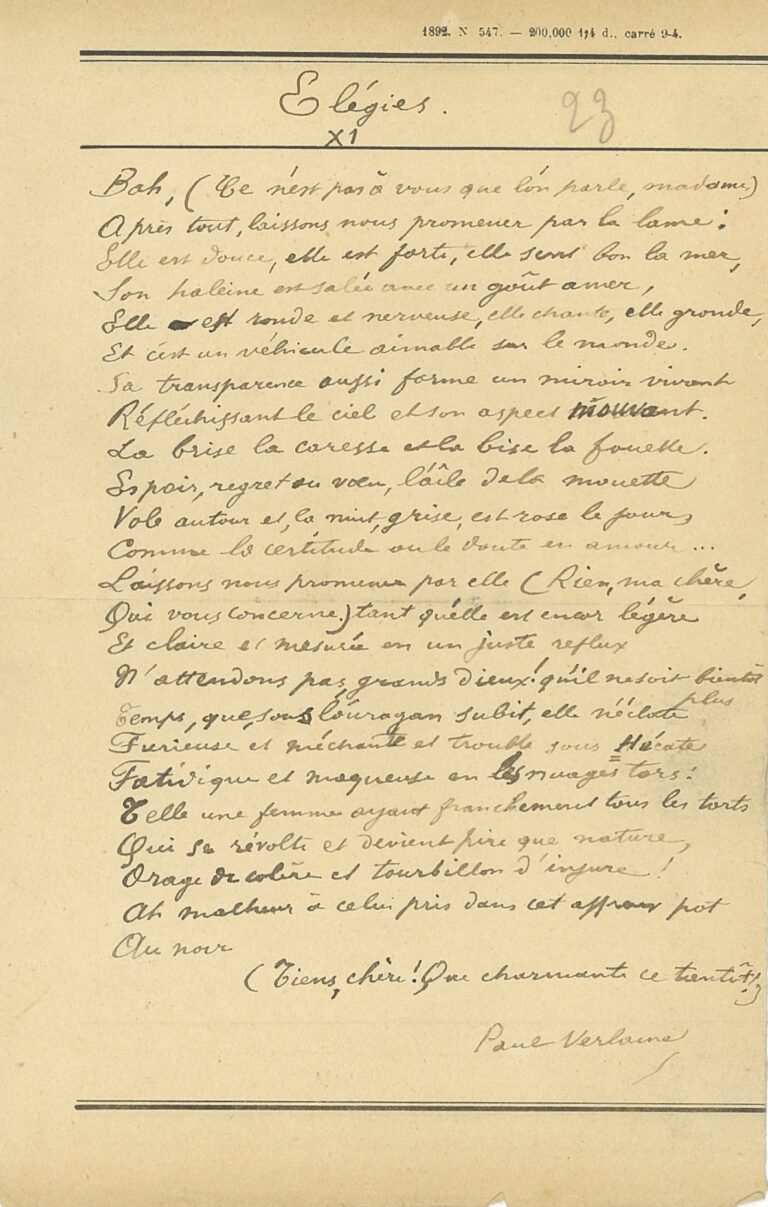 1892. N 547. — 200,000 1/4 d., carré 9-4.
Elégies.
23
XI
Bah, (Ce n'est pas à vous que l'on parle, madame)
Après tout, laissons nous promener par la lame :
Elle est douce, elle est forte, elle sent bon la mer,
Son haleine est salée avec un goût amer,
Elle est ronde et nerveuse, elle chante, elle gronde,
Et c'est un véhicule aimable sur le monde.
Sa transparence aussi forme un miroir vivant
Réfléchissant le ciel et son aspect mouvant.
La brise la caresse et la bise la fouette.
Espoir, regret ou vœu, l'aîle de la mouette
Vole autour et, la nuit, grise, est rose le jour,
Comme la certitude ou le doute en amour ...
Laissons nous promener par elle (Rien, ma chère,
Qui vous concerne.) tant qu'elle est encor légère
Et claire et mesurée en un juste reflux
N'attendons pas, grands dieux! qu'il ne soit bientôt
plus
Temps, que, sous l'ouragan subit, elle n'éclate
Furieuse et méchante et trouble sous Hécate
Fatidique et moqueuse en les nuages tors :
Telle une femme ayant franchement tous les torts
Qui se révolte et devient pire que nature,
Orage de colère et tourbillon d'injure !
Ah malheur à celui pris dans cet affreux pot
Au noir
(Tiens, chère! Que charmante ce tantôt!)
Paul Verlaine